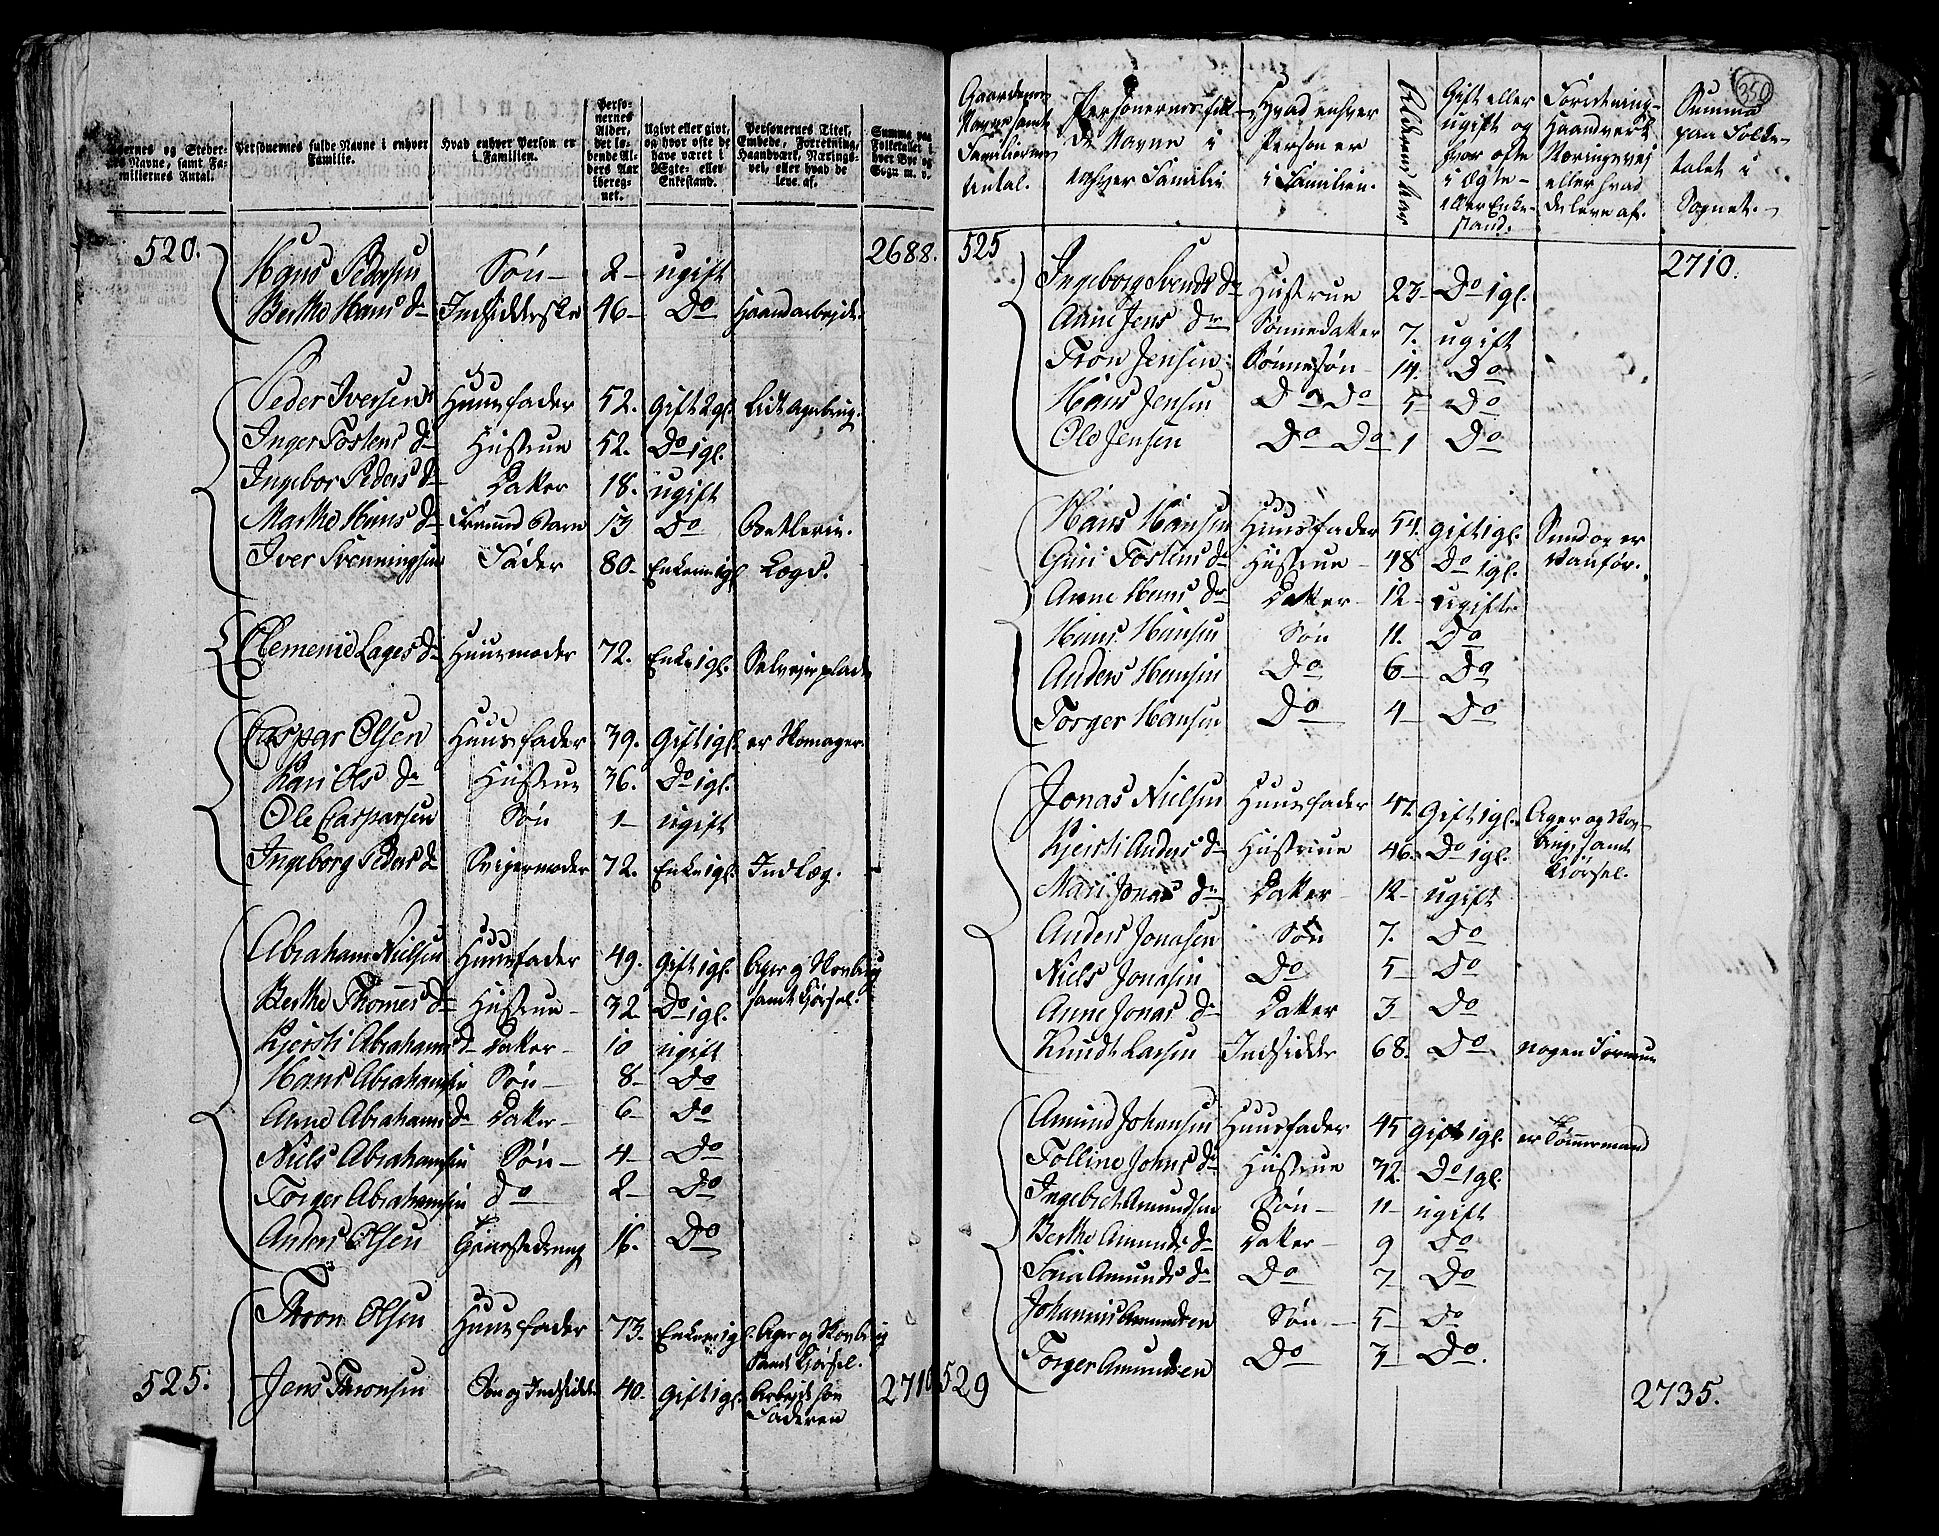 Gaardernes og Stedernes Navne, samt Familiernes Antal.
Personernes fulde Navne i enhver Familie.
Hvad enhver Person er i Familien.
Personernes Alder, det løbende Alders Aar iberegnet.
Ugivt eller givt, og hvor ofte de have været i Ægte- eller Enkestand.
Personernes Titel, Embede, Forretning, Haandværk, Næringsvei, eller hvad de leve af.
Summa paa Folketallet i hver Bye og Sogn m. v.
520. 2688.
Hans Pedersen Søn 2 ugift
Berthe Hans Dr Indsidderske 46 Do Haandarbejde
Peder Iversen Huusfader 52. Gift 2gl. Lidt Agerbrug.
Inger Tostens Dr Hustrue 52. Do 1gl.
Ingebor Peders Dr Datter 18. ugift
Marthe Hans Dr Fremed Barn 13 Do Betlerin.
Iver Svenningsen Fader 80 Enkem 1gl. Lægd.
Clemenie Lages Dr Huusmoder 72. Enke 1gl. Selvejerplads
Caspar Olsen Huusfader 39. Gift 1gl. er Skomager.
Kari Ols Dr Hustrue 36. Do 1gl.
Ole Casparsen Søn 1 ugift
Ingeborg Peders Dr Svigermoder 72. Enke 1gl. Indlæg.
Abraham Nielsen Huusfader 49. Gift 1gl. Ager og Skovbrug
Berthe Thomes Dr Hustrue 32 Do 1gl. samt Kjørsel.
Kjersti Abrahams Dr Datter 10 ugift
Hans Abrahamsen Søn 8 Do
Anne Abrahams Dr Datter 6 Do
Niels Abrahamsen Søn 4 Do
Torger Abrahamsen do 2 Do
Anders Olsen 16. Do
Thron Olsen Huusfader 73. Enkem 1gl. Ager og Skovbrug
samt Kjørsel.
525. Jens Thronsen Søn og Indsidder 40. Gift 1gl. Arbejds hos 2710
Faderen
350
Gaardernes Navne samt Familiernes Antal.
Personernes fulde Navne i enhver Familie
Hvad enhver Person er i Familien.
Alderens Aar
Gift eller ugift og hvor ofte i Ægte- eller Enkestand.
Foretning Haandverk Næringsvej eller hvad De leve af.
Summa paa Folketalet i Sognet.
525 2710.
Ingeborg Svends Dr Hustrue 23 Do 1gl.
Anne Jens Dr Sønnedatter 7. ugift
Tron Jensen Sønnesøn 14. Do
Hans Jensen Do Do 5 Do
Ole Jensen Do Do 1 Do
Hans Hansen Huusfader 54. Gift 1gl. Smed og er
Guri Tostens Dr Hustrue 48 Do 1gl. vanfør.
Anne Hans Dr Datter 12 ugift
Hans Hansen Søn 11. Do
Anders Hansen Do 6 Do
Torger Hansen Do 4 Do
Jonas Nielsen Huusfader 47. Gift 1gl. Ager og Skov-
Kjersti Anders Dr Hustrue 46. Do 1gl. brug samt
Mari Jonas Dr Datter 12 ugift Kjørsel.
Anders Jonasen Søn 7. Do
Niels Jonasen Do 5 Do
Anne Jonas Dr Datter 3 Do
Knudt Larsen Indsidder 68. Do nogen Formue
Amund Johansen Huusfader 45 Gift 1gl. er Tømmermand
Tolline Johns Dr Hustrue 32. Do 1gl.
Ingebret Amundsen Søn 11 ugift
Berthe Amunds Dr Datter 9 Do
Amunds Dr Do 7 Do
Johannes Amundsen Søn 5 Do
Torger Amundsen Do 3 Do.
529 2735.